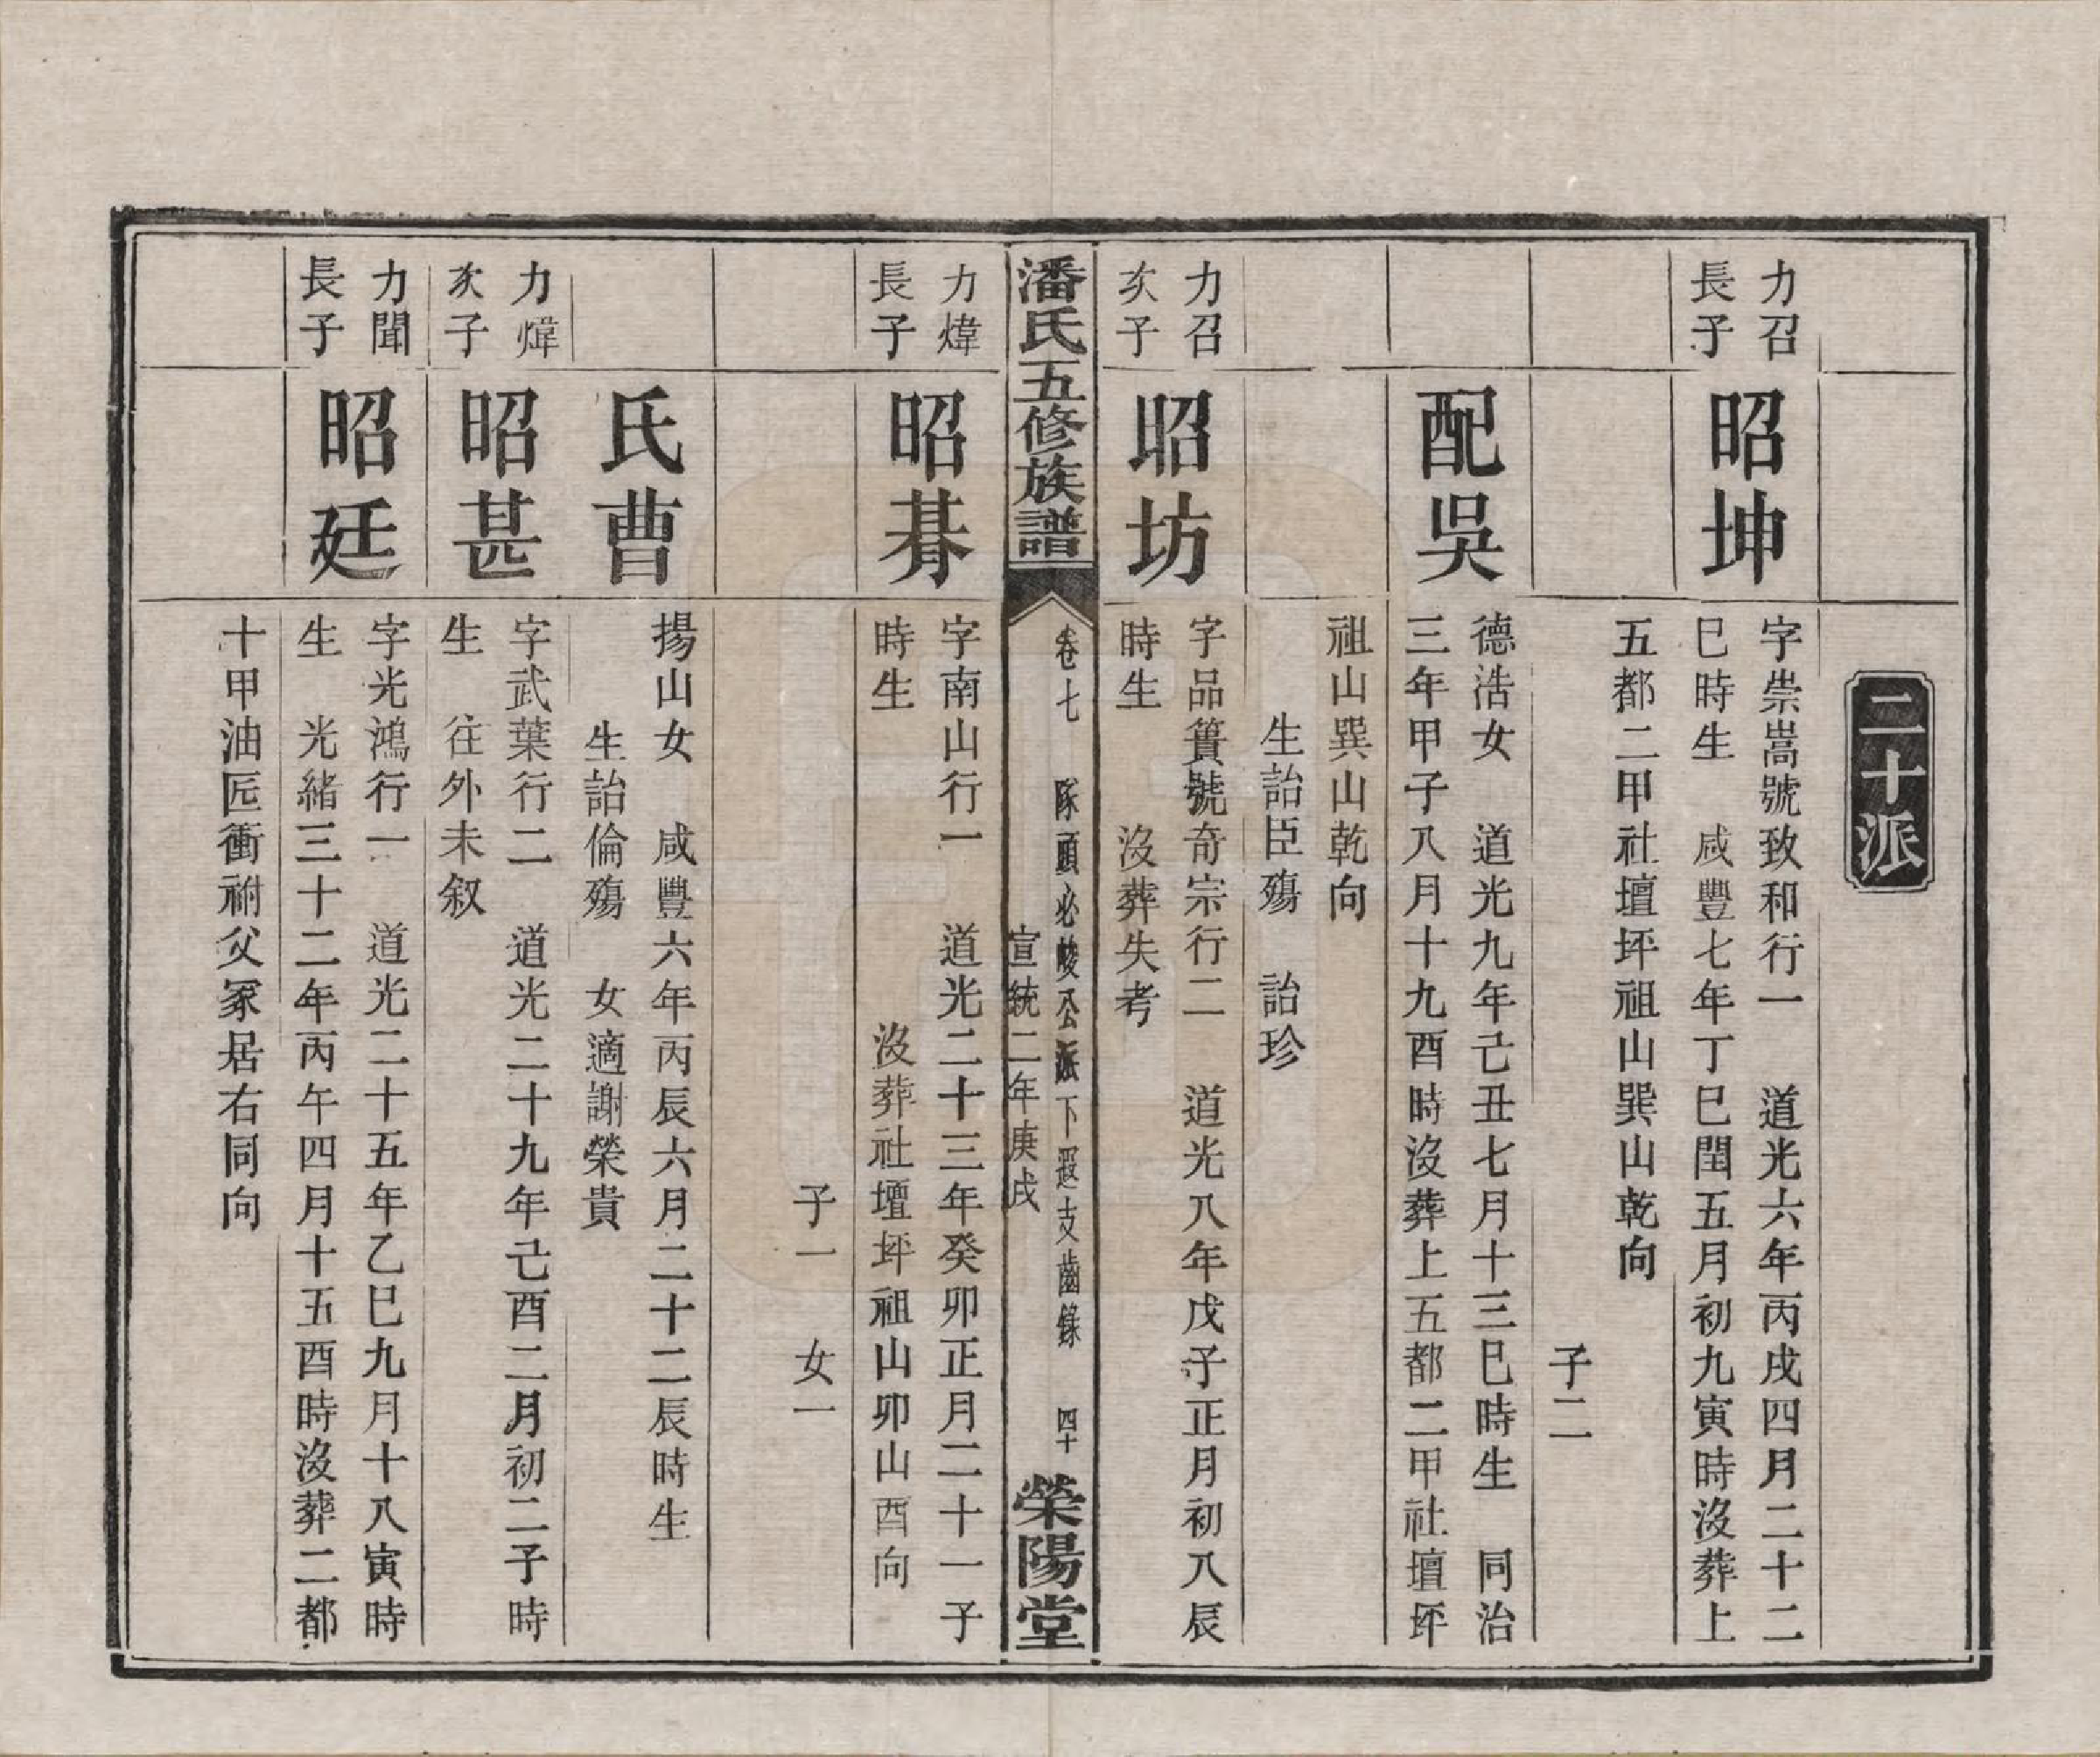 二十派
力召
長子
昭坤
字崇嵩號致和行一　道光六年丙戌四月二十二
巳時生　咸豐七年丁巳閏五月初九寅時沒葬上
五都二甲社壇坪祖山巽山乾向
子二
配吳
德浩女　道光九年己丑七月十三巳時生　同治
三年甲子八月十九酉時沒葬上五都二甲社壇坪
祖山巽山乾向
生詒臣殤　詒珍
力召
次子
昭坊
字品簣號奇宗行二　道光八年戊子正月初八辰
時生　沒葬失考
潘氏五修族譜
卷七　隊頭必峻公派下遐支齒錄　四十
宣統二年庚戌
榮陽堂
力煒
長子
昭朞
字南山行一　道光二十三年癸卯正月二十一子
時生　沒葬社壇坪祖山卯山酉向
子一　女一
氏曹
揚山女　咸豐六年丙辰六月二十二辰時生
生詒倫殤　女適謝榮貴
力煒
次子
昭甚
字武葉行二　道光二十九年己酉二月初二子時
生　往外未叙
力聞
長子
昭廷
字光鴻行一　道光二十五年乙巳九月十八寅時
生　光緒三十二年丙午四月十五酉時沒葬二都
十甲油匠衝祔父冢居右同向